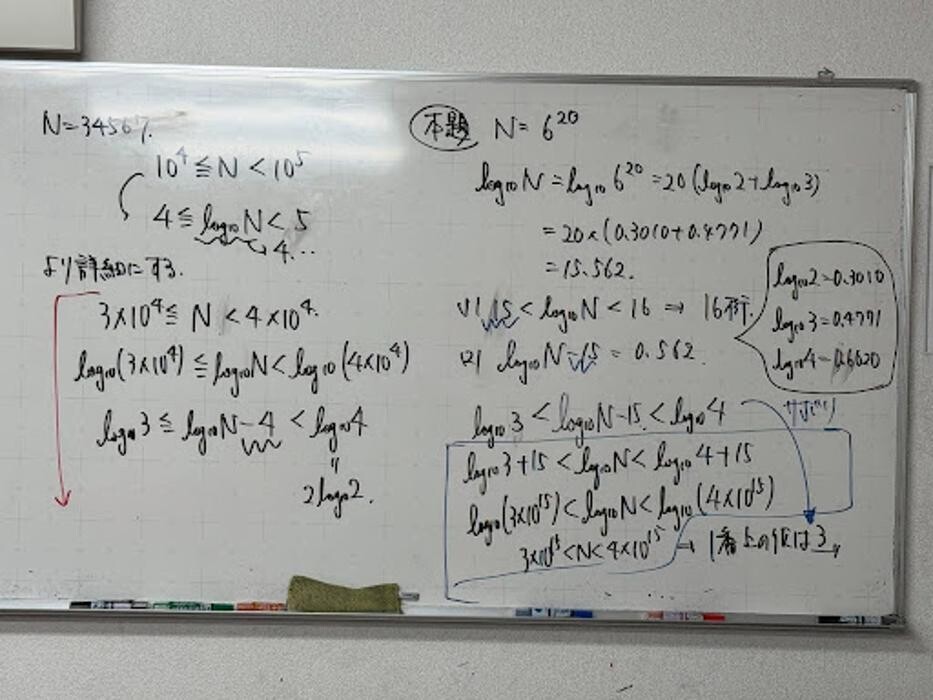 N=34567.
10⁴ ≦ N < 10⁵
4 ≦ log₁₀N < 5
4...
より詳細にする.
3×10⁴ ≦ N < 4×10⁴.
log₁₀(3×10⁴) ≦ log₁₀N < log₁₀(4×10⁴)
log₁₀3 ≦ log₁₀N-4 < log₁₀4
=
2log₁₀2.
本題 N=6²⁰
log₁₀N = log₁₀6²⁰ = 20(log₁₀2+log₁₀3)
= 20×(0.3010+0.4771)
= 15.562.
(1) 15 < log₁₀N < 16 → 16桁.
(2) log₁₀N-15 = 0.562.
log₁₀2=0.3010
log₁₀3=0.4771
log₁₀4=0.6020
log₁₀3 < log₁₀N-15 < log₁₀4
log₁₀3+15 < log₁₀N < log₁₀4+15
log₁₀(3×10¹⁵) < log₁₀N < log₁₀(4×10¹⁵)
3×10¹⁵ < N < 4×10¹⁵ → 1番上の位は3